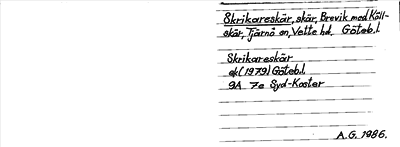 Skrikareskär, skär, Brevik med Käll-
skär, Tjärnö sn, Vette hd, Göteb.l.
Skrikareskär
ek (1979) Göteb.l.
9A 7e Syd-Koster
A.G. 1986.